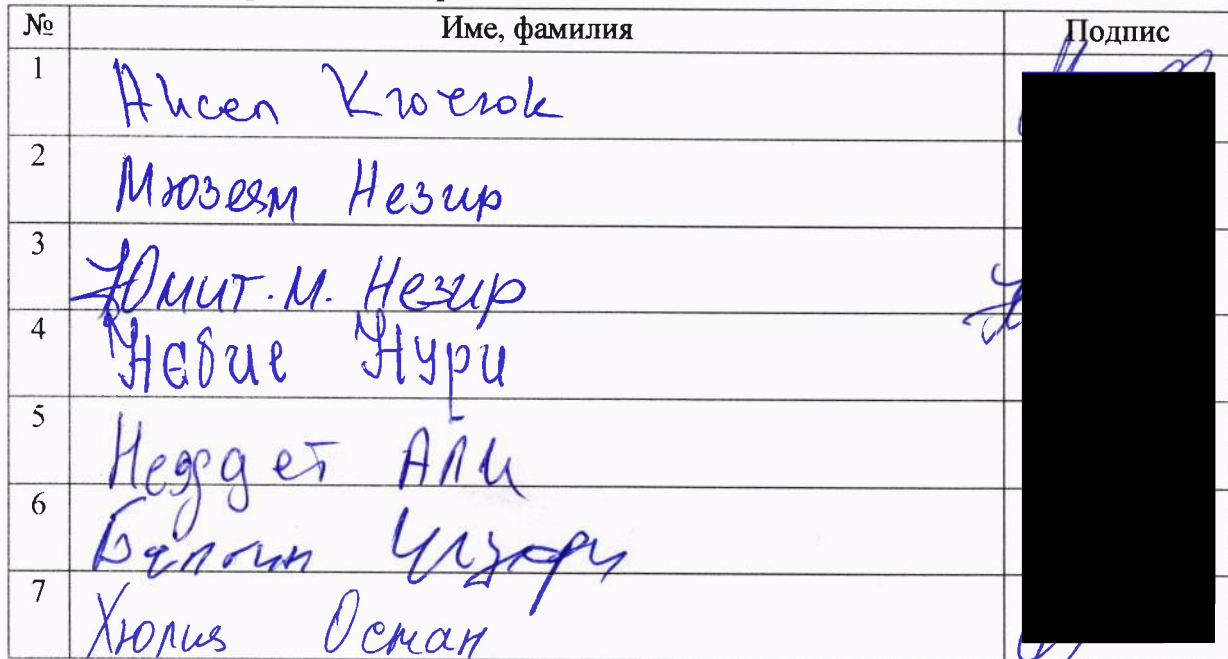 № Име, фамилия Подпис
1 Айсел Кючюк
2 Мюзеям Незир
3 Юмит. М. Незир
4 Набие Нури
5 Недждет Али
6
7 Хюлия Осман